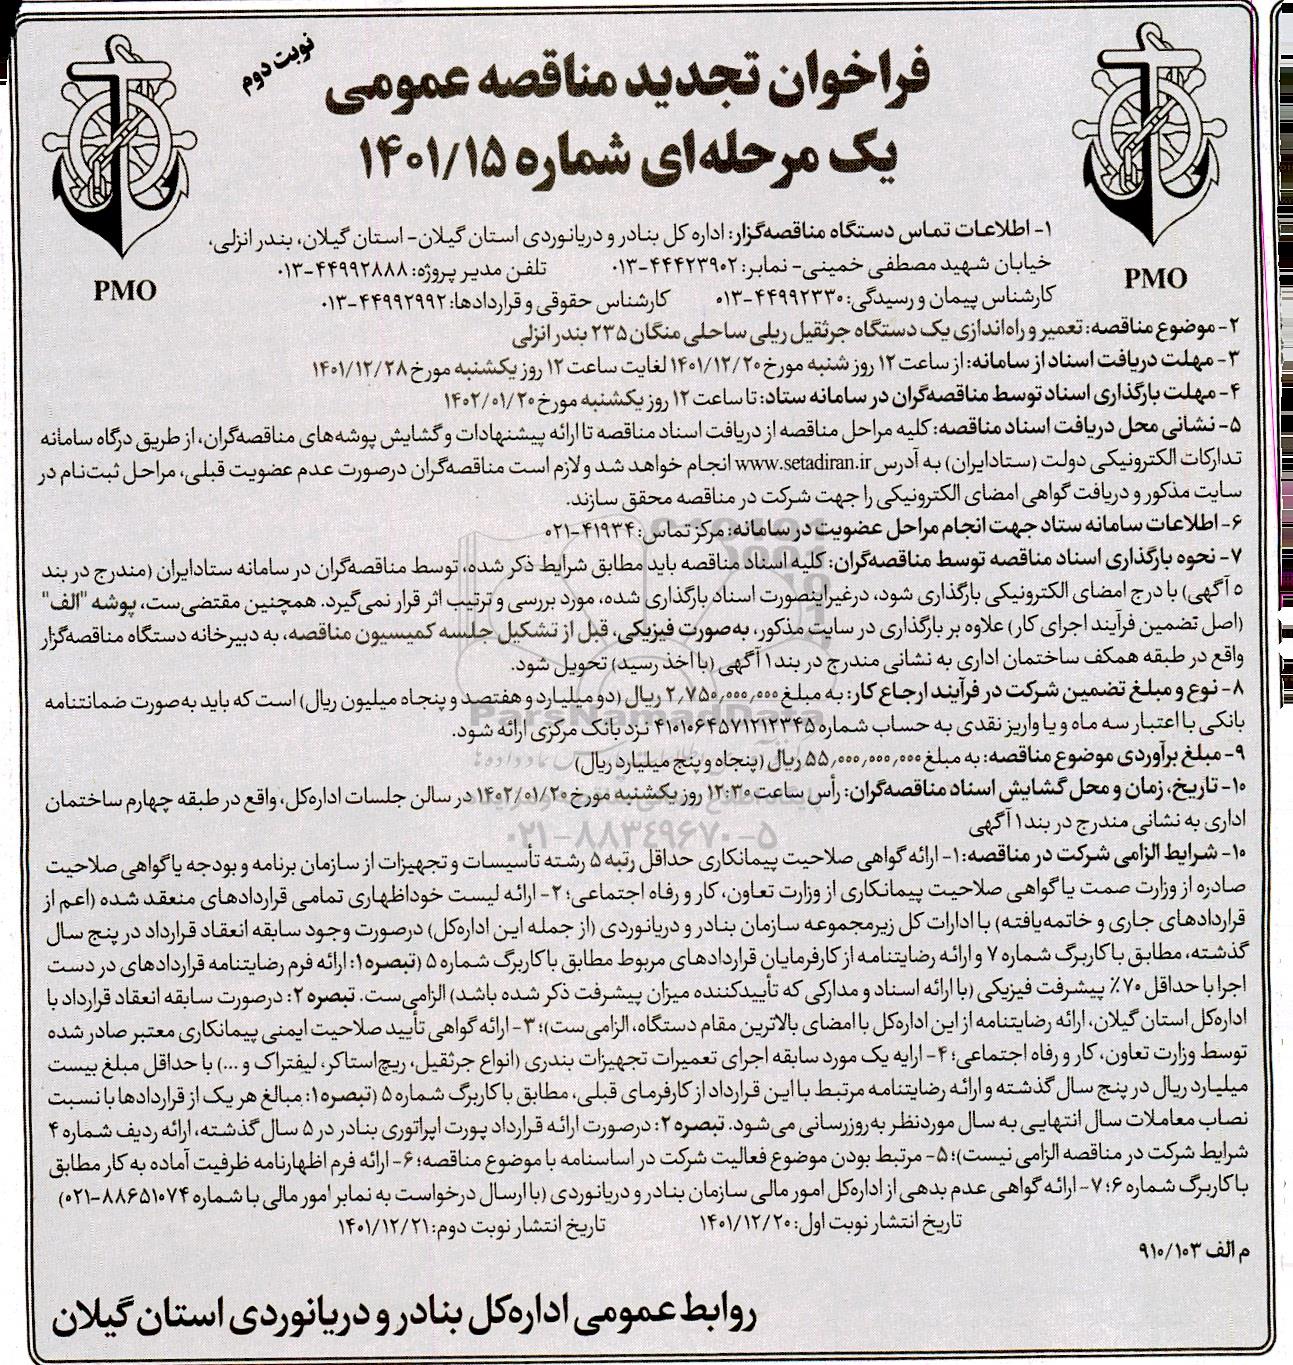 نوبت دوم
فراخوان تجدید مناقصه عمومی
یک مرحله‌ای شماره ۱۴۰۱/۱۵
PMO
PMO
۱- اطلاعات تماس دستگاه مناقصه‌گزار: اداره کل بنادر و دریانوردی استان گیلان- استان گیلان، بندر انزلی،
خیابان شهید مصطفی خمینی- نمابر: ۴۴۴۲۳۹۰۲-۰۱۳ تلفن مدیر پروژه: ۴۴۹۹۲۸۸۸-۰۱۳
کارشناس پیمان و رسیدگی: ۴۴۹۹۲۳۳۰-۰۱۳ کارشناس حقوقی و قراردادها: ۴۴۹۹۲۹۹۲-۰۱۳
۲- موضوع مناقصه: تعمیر و راه‌اندازی یک دستگاه جرثقیل ریلی ساحلی منگان ۲۳۵ بندر انزلی
۳- مهلت دریافت اسناد از سامانه: از ساعت ۱۲ روز شنبه مورخ ۱۴۰۱/۱۲/۲۰ لغایت ساعت ۱۲ روز یکشنبه مورخ ۱۴۰۱/۱۲/۲۸
۴- مهلت بارگذاری اسناد توسط مناقصه‌گران در سامانه ستاد: تا ساعت ۱۲ روز یکشنبه مورخ ۱۴۰۲/۰۱/۲۰
۵- نشانی محل دریافت اسناد مناقصه: کلیه مراحل مناقصه از دریافت اسناد مناقصه تا ارائه پیشنهادات و گشایش پوشه‌های مناقصه‌گران، از طریق درگاه سامانه
تدارکات الکترونیکی دولت (ستادایران) به آدرس www.setadiran.ir انجام خواهد شد و لازم است مناقصه‌گران درصورت عدم عضویت قبلی، مراحل ثبت‌نام در
سایت مذکور و دریافت گواهی امضای الکترونیکی را جهت شرکت در مناقصه محقق سازند.
۶- اطلاعات سامانه ستاد جهت انجام مراحل عضویت در سامانه: مرکز تماس: ۴۱۹۳۴-۰۲۱
۷- نحوه بارگذاری اسناد مناقصه توسط مناقصه‌گران: کلیه اسناد مناقصه باید مطابق شرایط ذکر شده، توسط مناقصه‌گران در سامانه ستادایران (مندرج در بند
۵ آگهی) با درج امضای الکترونیکی بارگذاری شود، درغیراینصورت اسناد بارگذاری شده، مورد بررسی و ترتیب اثر قرار نمی‌گیرد. همچنین مقتضی‌ست، پوشه "الف"
(اصل تضمین فرآیند اجرای کار) علاوه بر بارگذاری در سایت مذکور، به‌صورت فیزیکی، قبل از تشکیل جلسه کمیسیون مناقصه، به دبیرخانه دستگاه مناقصه‌گزار
واقع در طبقه همکف ساختمان اداری به نشانی مندرج در بند ۱ آگهی (با اخذ رسید) تحویل شود.
۸- نوع و مبلغ تضمین شرکت در فرآیند ارجاع کار: به مبلغ ۲٫۷۵۰٫۰۰۰٫۰۰۰ ریال (دو میلیارد و هفتصد و پنجاه میلیون ریال) است که باید به‌صورت ضمانتنامه
بانکی با اعتبار سه ماه و یا واریز نقدی به حساب شماره ۴۱۰۱۰۶۴۵۷۱۲۱۲۳۴۵ نزد بانک مرکزی ارائه شود.
۹- مبلغ برآوردی موضوع مناقصه: به مبلغ ۵۵٫۰۰۰٫۰۰۰٫۰۰۰ ریال (پنجاه و پنج میلیارد ریال)
۱۰- تاریخ، زمان و محل گشایش اسناد مناقصه‌گران: رأس ساعت ۱۲:۳۰ روز یکشنبه مورخ ۱۴۰۲/۰۱/۲۰ در سالن جلسات اداره‌کل، واقع در طبقه چهارم ساختمان
اداری به نشانی مندرج در بند ۱ آگهی
۱۰- شرایط الزامی شرکت در مناقصه: ۱- ارائه گواهی صلاحیت پیمانکاری حداقل رتبه ۵ رشته تأسیسات و تجهیزات از سازمان برنامه و بودجه یا گواهی صلاحیت
صادره از وزارت صمت یا گواهی صلاحیت پیمانکاری از وزارت تعاون، کار و رفاه اجتماعی؛ ۲- ارائه لیست خوداظهاری تمامی قراردادهای منعقد شده (اعم از
قراردادهای جاری و خاتمه‌یافته) با ادارات کل زیرمجموعه سازمان بنادر و دریانوردی (از جمله این اداره‌کل) درصورت وجود سابقه انعقاد قرارداد در پنج سال
گذشته، مطابق با کاربرگ شماره ۷ و ارائه رضایتنامه از کارفرمایان قراردادهای مربوط مطابق با کاربرگ شماره ۵ (تبصره ۱: ارائه فرم رضایتنامه قراردادهای در دست
اجرا با حداقل ۷۰٪ پیشرفت فیزیکی (با ارائه اسناد و مدارکی که تأییدکننده میزان پیشرفت ذکر شده باشد) الزامی‌ست. تبصره ۲: درصورت سابقه انعقاد قرارداد با
اداره‌کل استان گیلان، ارائه رضایتنامه از این اداره‌کل با امضای بالاترین مقام دستگاه، الزامی‌ست)؛ ۳- ارائه گواهی تأیید صلاحیت ایمنی پیمانکاری معتبر صادر شده
توسط وزارت تعاون، کار و رفاه اجتماعی؛ ۴- ارایه یک مورد سابقه اجرای تعمیرات تجهیزات بندری (انواع جرثقیل، ریچ‌استاکر، لیفتراک و ...) با حداقل مبلغ بیست
میلیارد ریال در پنج سال گذشته و ارائه رضایتنامه مرتبط با این قرارداد از کارفرمای قبلی، مطابق با کاربرگ شماره ۵ (تبصره ۱: مبالغ هر یک از قراردادها با نسبت
نصاب معاملات سال انتهایی به سال موردنظر به‌روزرسانی می‌شود. تبصره ۲: درصورت ارائه قرارداد پورت اپراتوری بنادر در ۵ سال گذشته، ارائه ردیف شماره ۴
شرایط شرکت در مناقصه الزامی نیست)؛ ۵- مرتبط بودن موضوع فعالیت شرکت در اساسنامه با موضوع مناقصه؛ ۶- ارائه فرم اظهارنامه ظرفیت آماده به کار مطابق
با کاربرگ شماره ۶؛ ۷- ارائه گواهی عدم بدهی از اداره‌کل امور مالی سازمان بنادر و دریانوردی (با ارسال درخواست به نمابر امور مالی با شماره ۸۸۶۵۱۰۷۴-۰۲۱)
تاریخ انتشار نوبت اول: ۱۴۰۱/۱۲/۲۰ تاریخ انتشار نوبت دوم: ۱۴۰۱/۱۲/۲۱
م الف ۹۱۰/۱۰۳
روابط عمومی اداره‌کل بنادر و دریانوردی استان گیلان
ParsNamadData
۰۲۱-۸۸۳۴۹۶۷۰-۵